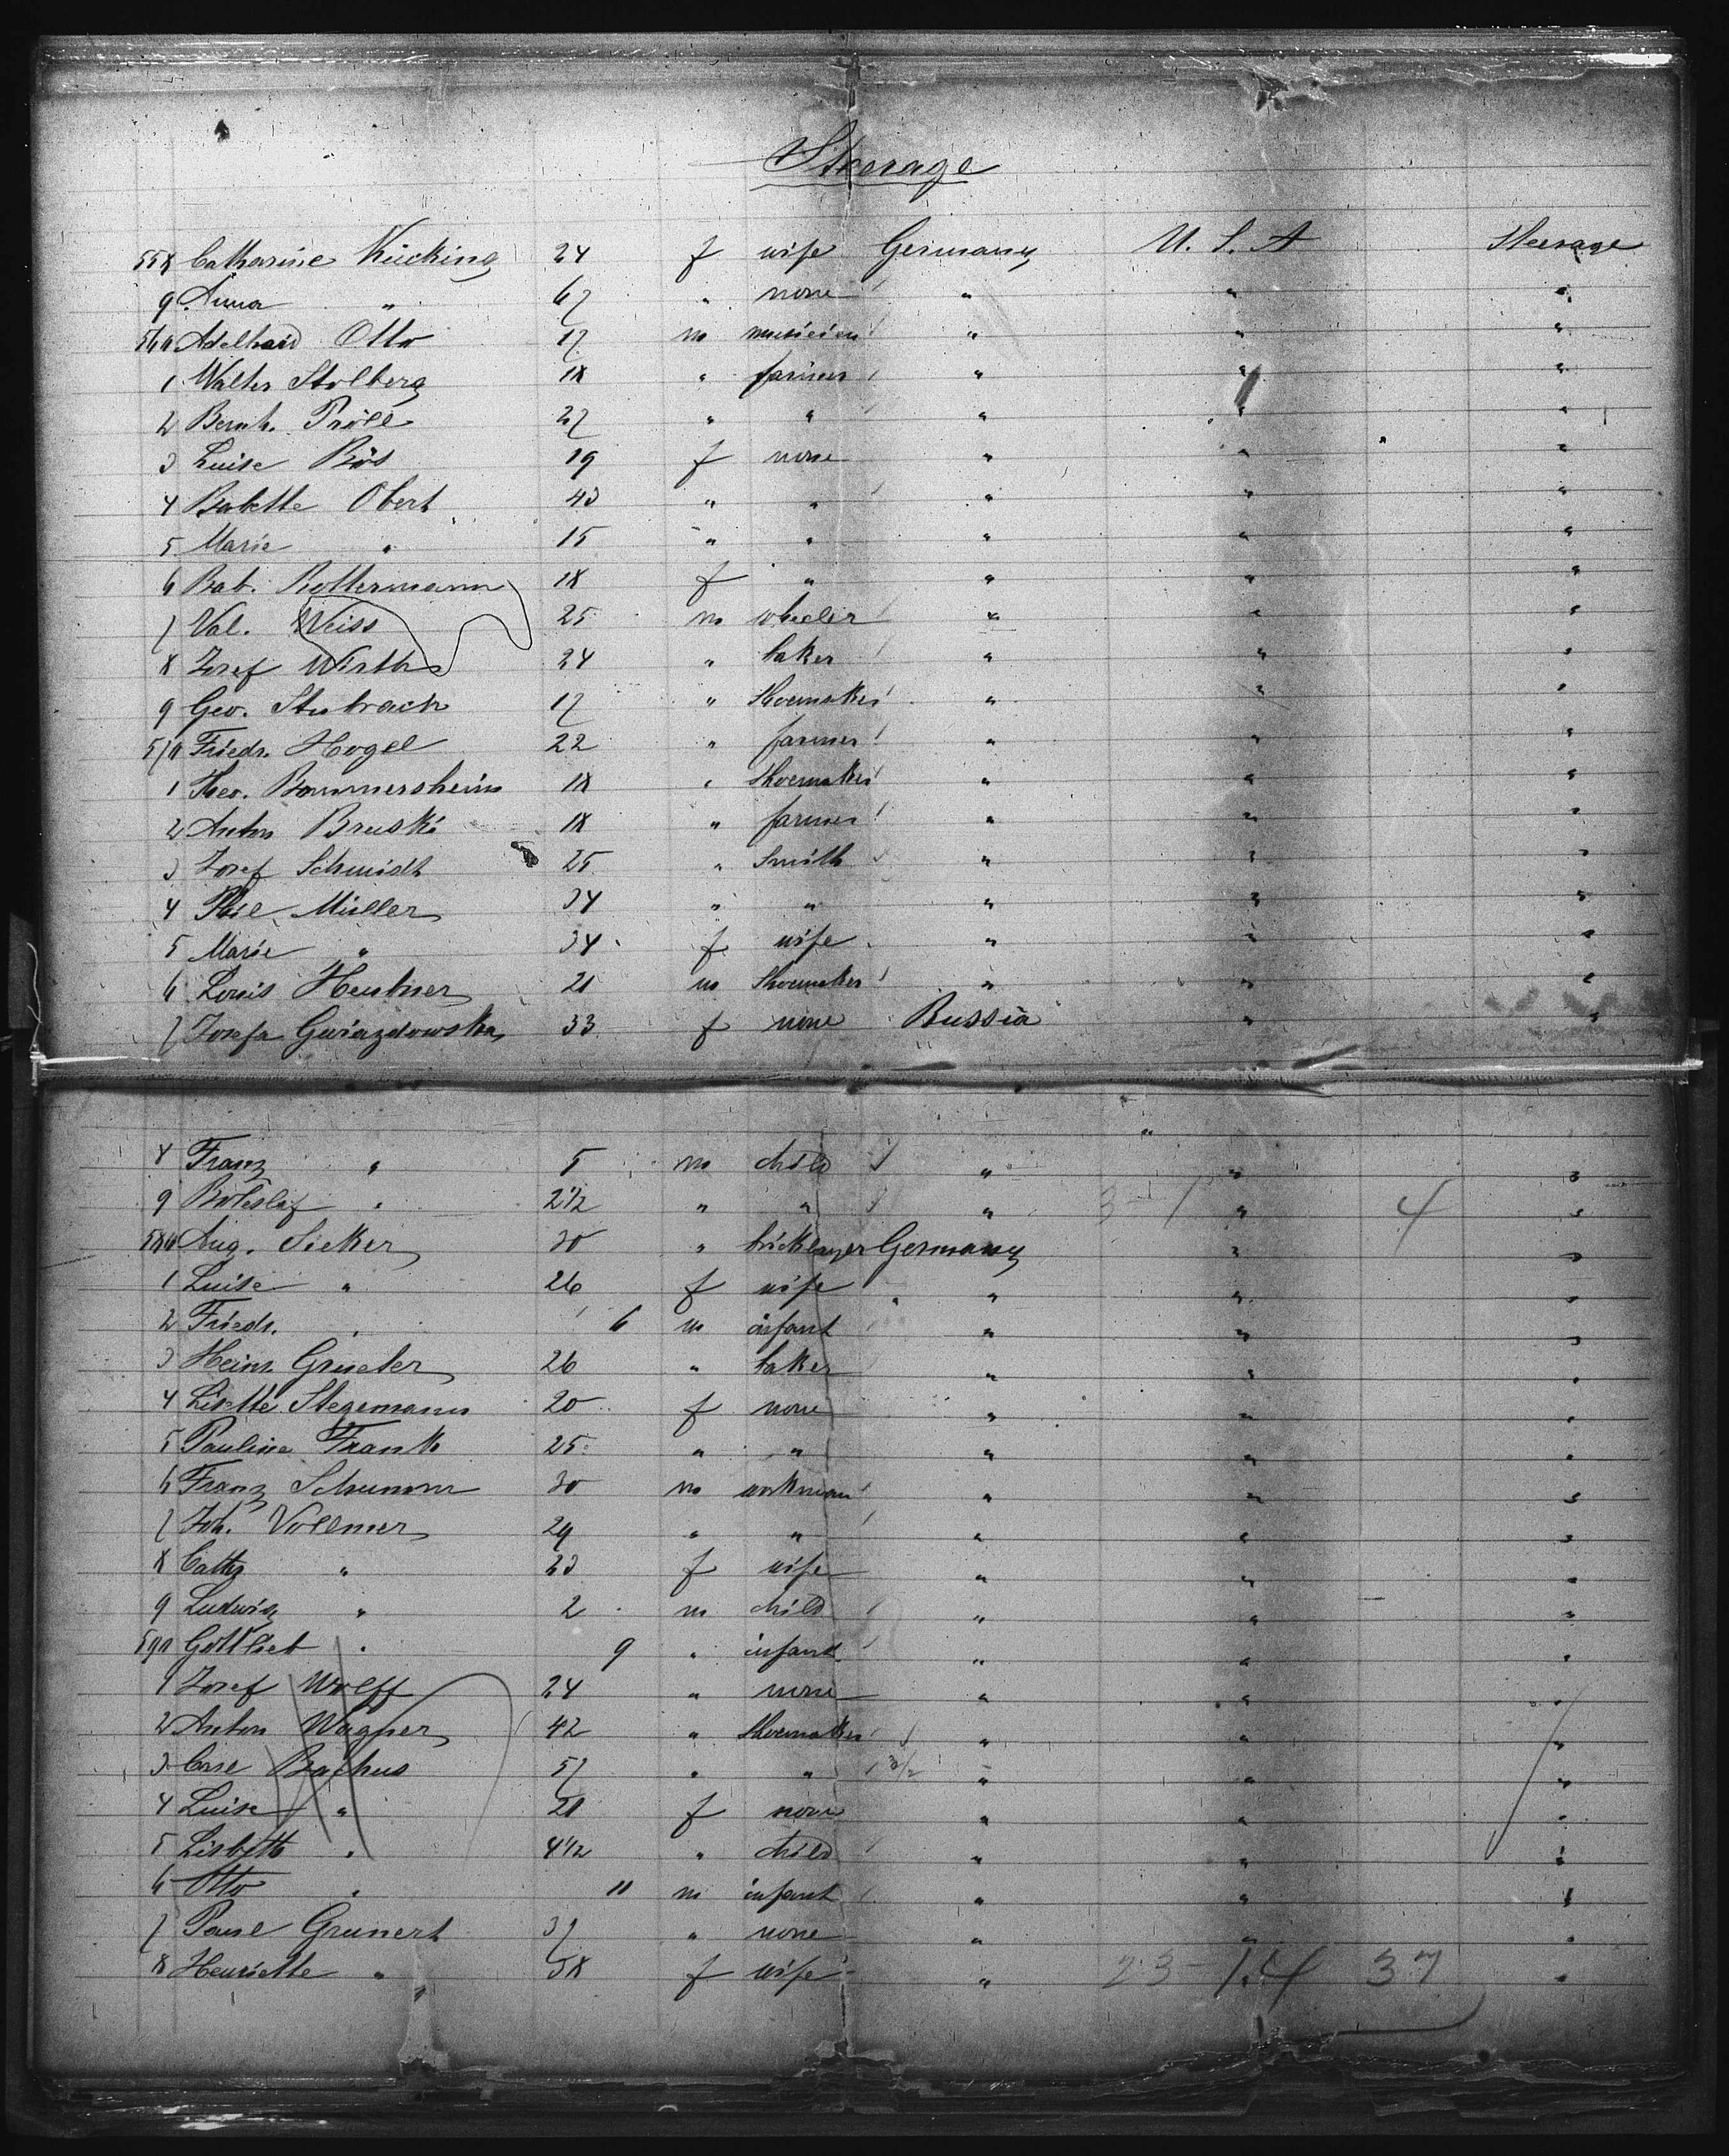 Steerage
558 Catharine Kücking 24 f wife Germany U. S. A Steerage
9 Anna " 67 " none " " "
560 Adelhard Otto 17 m musician " " "
1 Walter Stolberg 18 " farmer " " "
2 Bernh. Pröll 27 " " " " "
3 Luise Bös 19 f none " " "
4 Babette Obert 43 " " " " "
5 Marie " 15 " " " " "
6 Bab. Rottermann 18 f " " " "
7 Val. Weiss 25 m wheeler " " "
8 Josef Wirth 24 " baker " " "
9 Geo. Stubrach 17 " Shoemaker " " "
570 Friedr. Hogel 22 " farmer " " "
1 Theo. Bommersheim 18 " Shoemaker " " "
2 Anton Bruski 18 " farmer " " "
3 Josef Schmidt 25 " Smith " " "
4 Müller 34 " " " " "
5 Marie " 34 f wife " " "
6 Louis Heubner 21 m Shoemaker " " "
7 Josefa Gwiazdowska 33 f none Russia " "
8 Franz " 5 m child " " "
9 Boleslaf " 2 1/2 " " " 3-1 " 4 "
580 Aug. Sieker 30 " bricklayer Germany " "
1 Luise " 26 f wife " " "
2 Friedr. " 6 m infant " " "
3 Heinr. Grueter 26 " baker " " "
4 Lisette Stegemann 20 f none " " "
5 Pauline Frank 25 " " " " "
6 Franz Schumm 30 m workman " " "
7 Joh. Vollmer 29 " " " " "
8 Cath. " 23 f wife " " "
9 Ludwig " 2 m child " " "
590 Gottlieb " 9 " infant " " "
1 Josef Wolff 24 " none " " "
2 Anton Wagner 42 " Shoemaker " " "
3 Backus 57 " " 3/2 " " "
4 Luise " 21 f none " " "
5 Lisbeth " 4 1/2 " child " " "
6 Otto " 11 m infant " " "
7 Paul Grunert 37 " none " " "
8 Henriette " 38 f wife " 23-14 37 "